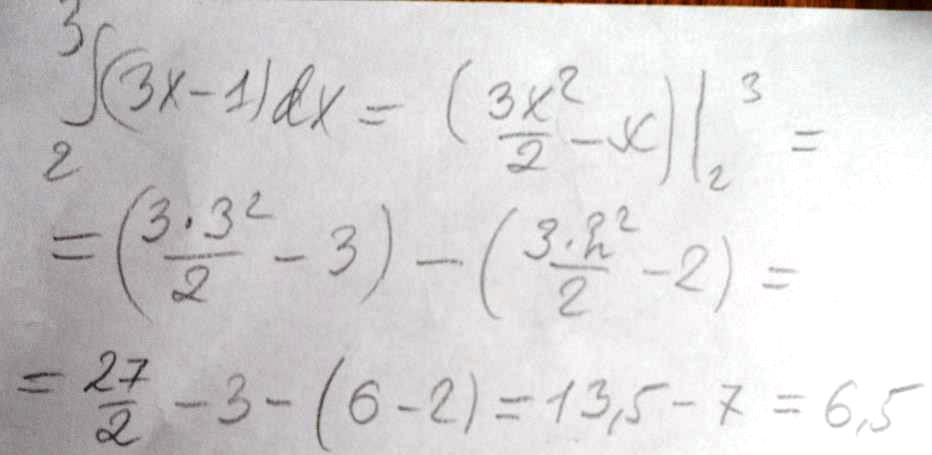 ∫₂³(3x-1)dx = (3x²/2 - x)|₂³ =
= (3·3²/2 - 3) - (3·2²/2 - 2) =
= 27/2 - 3 - (6-2) = 13,5 - 7 = 6,5